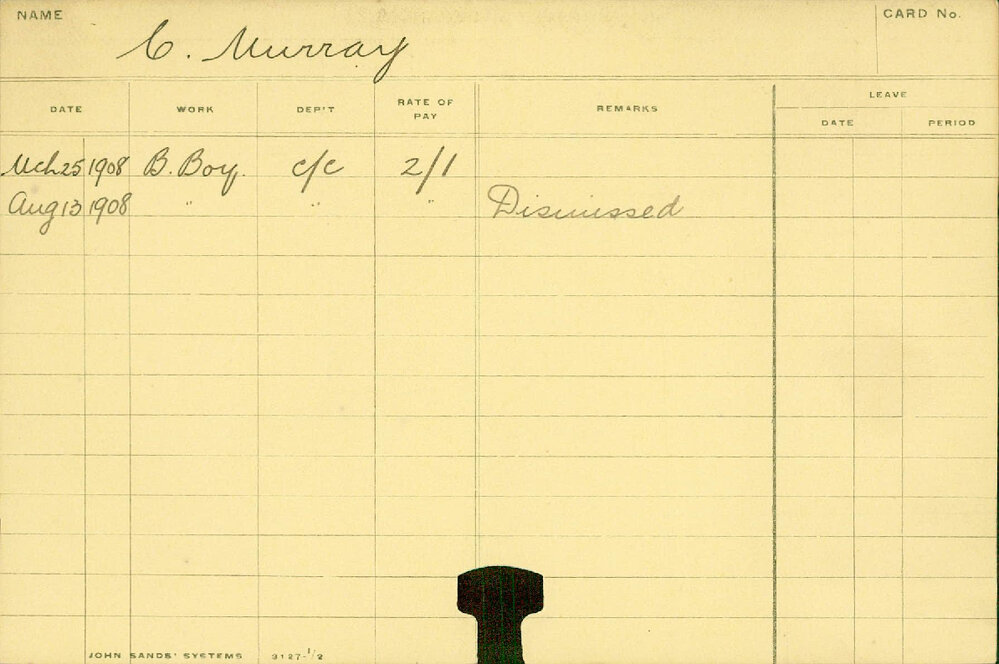 NAME
C. Murray
CARD No.
DATE WORK DEP'T RATE OF PAY REMARKS LEAVE
DATE PERIOD
Mch 25 1908 B. Boy. c/c 2/1
Aug 13 1908 " " " Dismissed
JOHN SANDS' SYSTEMS 3127-1/2